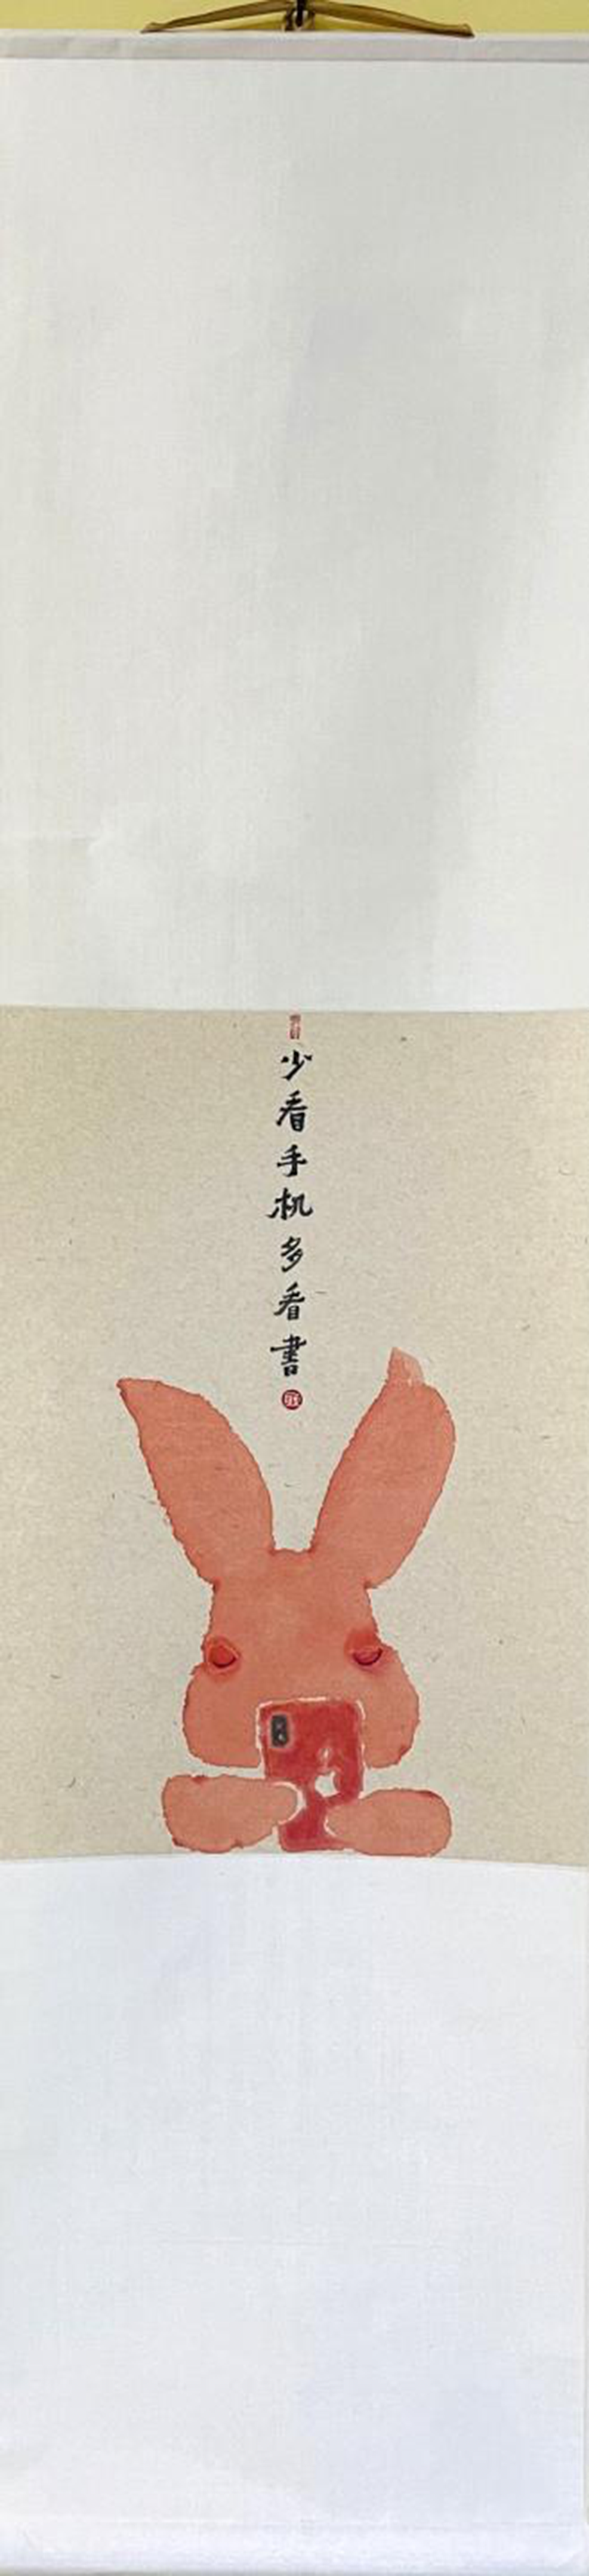 少看手机多看書